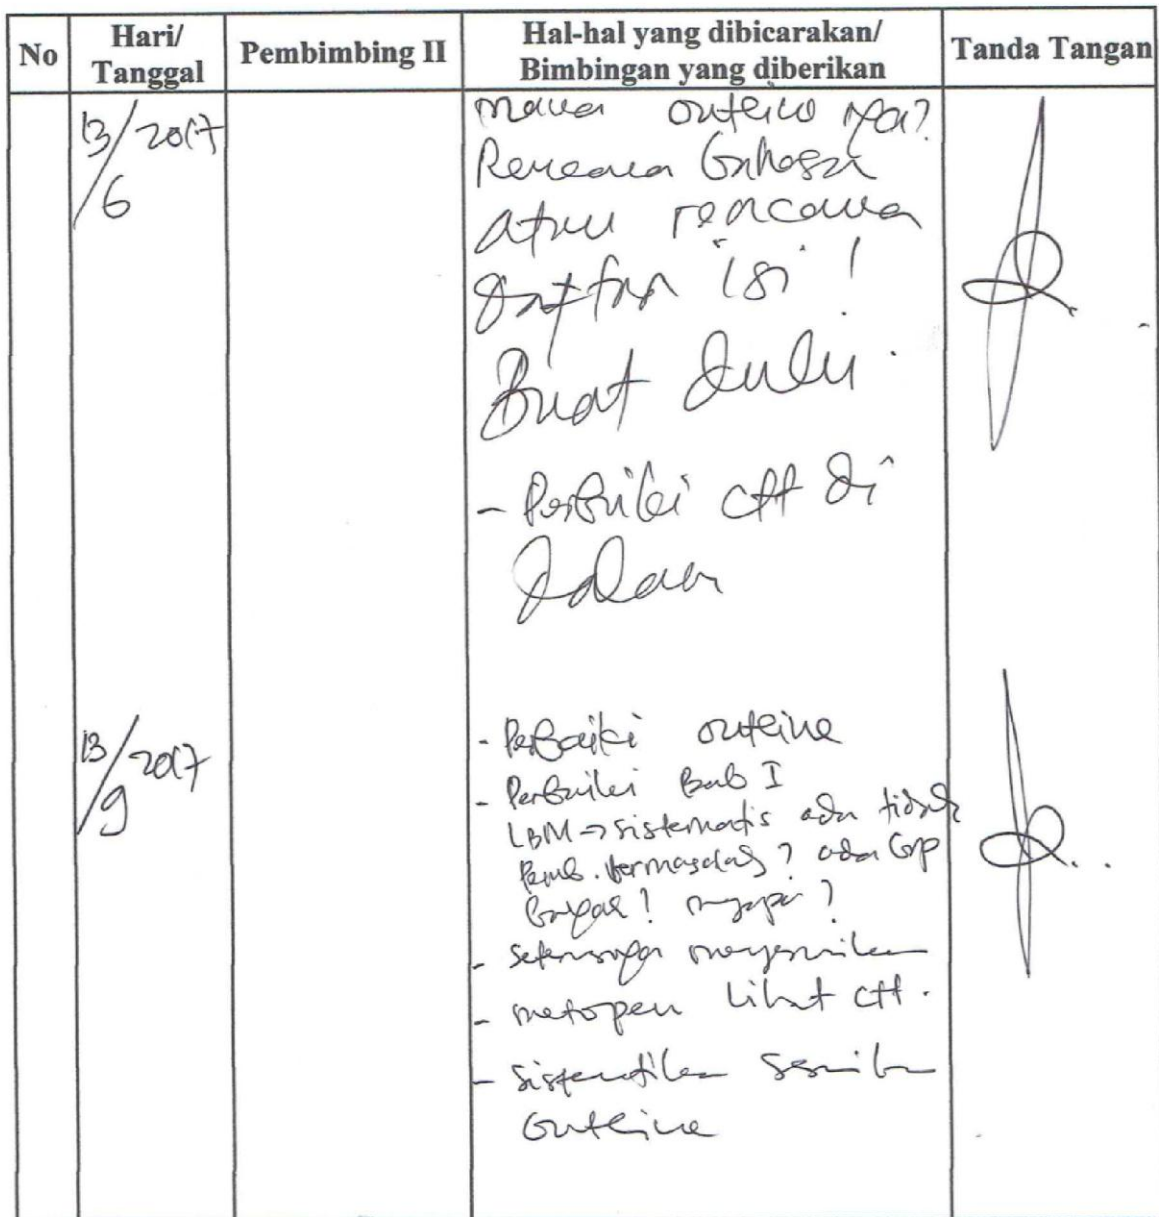 No
Hari/
Tanggal
Pembimbing II
Hal-hal yang dibicarakan/
Bimbingan yang diberikan
Tanda Tangan
13/6 2017
mana outline nya?
Rencana bahasan
atau rencana
daftar isi!
Buat dulu.
- Perbaiki ctt di
dalam
13/9 2017
- Perbaiki outline
- Perbaiki Bab I
LBM → sistematis ada tidak
Pemb. bermasalah? ada Gap
? mengapa?
- Selanjutnya menyesuaikan
- metopen lihat ctt.
- Sistematika sesuaikan
Outline